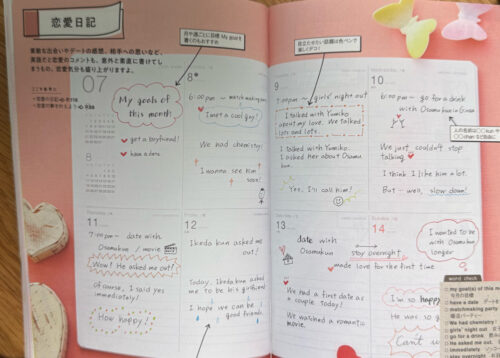 恋愛日記
素敵な出会いやデートの感想、相手への思いなど、
英語だと恋愛のコメントも、意外と素直に書けてし
まうもの。恋愛気分も盛り上がりますよ。
月や週ごとに目標 My goal を
書くのもおすすめ
目立たせたい話題は色ペンで
楽しくデコ!
07
My goals of
this month
get a boyfriend!
have a date
8
8
6:00 pm ~ matchmaking party
I met a cool guy!
We had chemistry!
I wanna see him
soon!
9
7:00 pm ~ girls' night out
I talked with Yumiko
about my love. We talked
lots and lots.
I talked with Yumiko.
I asked her about Osamu
kun.
Yes, I'll call him!
10
6:00 pm ~ go for a drink
with Osamukun in Ginza
We just couldn't stop
talking
I think I like him a lot.
But - well, slow down!
11
7:00 pm ~ date with
Osamukun / movie
Wow! He asked me out!
Of course, I said yes
immediately!
How happy!
12
Ikeda kun asked me
out!
Today, Ikeda kun asked
me to be his girlfriend.
I hope we can be
good friends.
13
date with
Osamukun
stay overnight
made love for the first time
We had a first date as
a couple. Today!
We watched a romantic
movie.
14
I wanted to be
with Osamukun
longer
I'm so happy
He was so
Can't
word check
my goal(s) of this m
今月の目標
have a date
matchmaking party
婚活パーティー
We had chemistry!
girls' night out
go for a drink
He asked me out
immediately